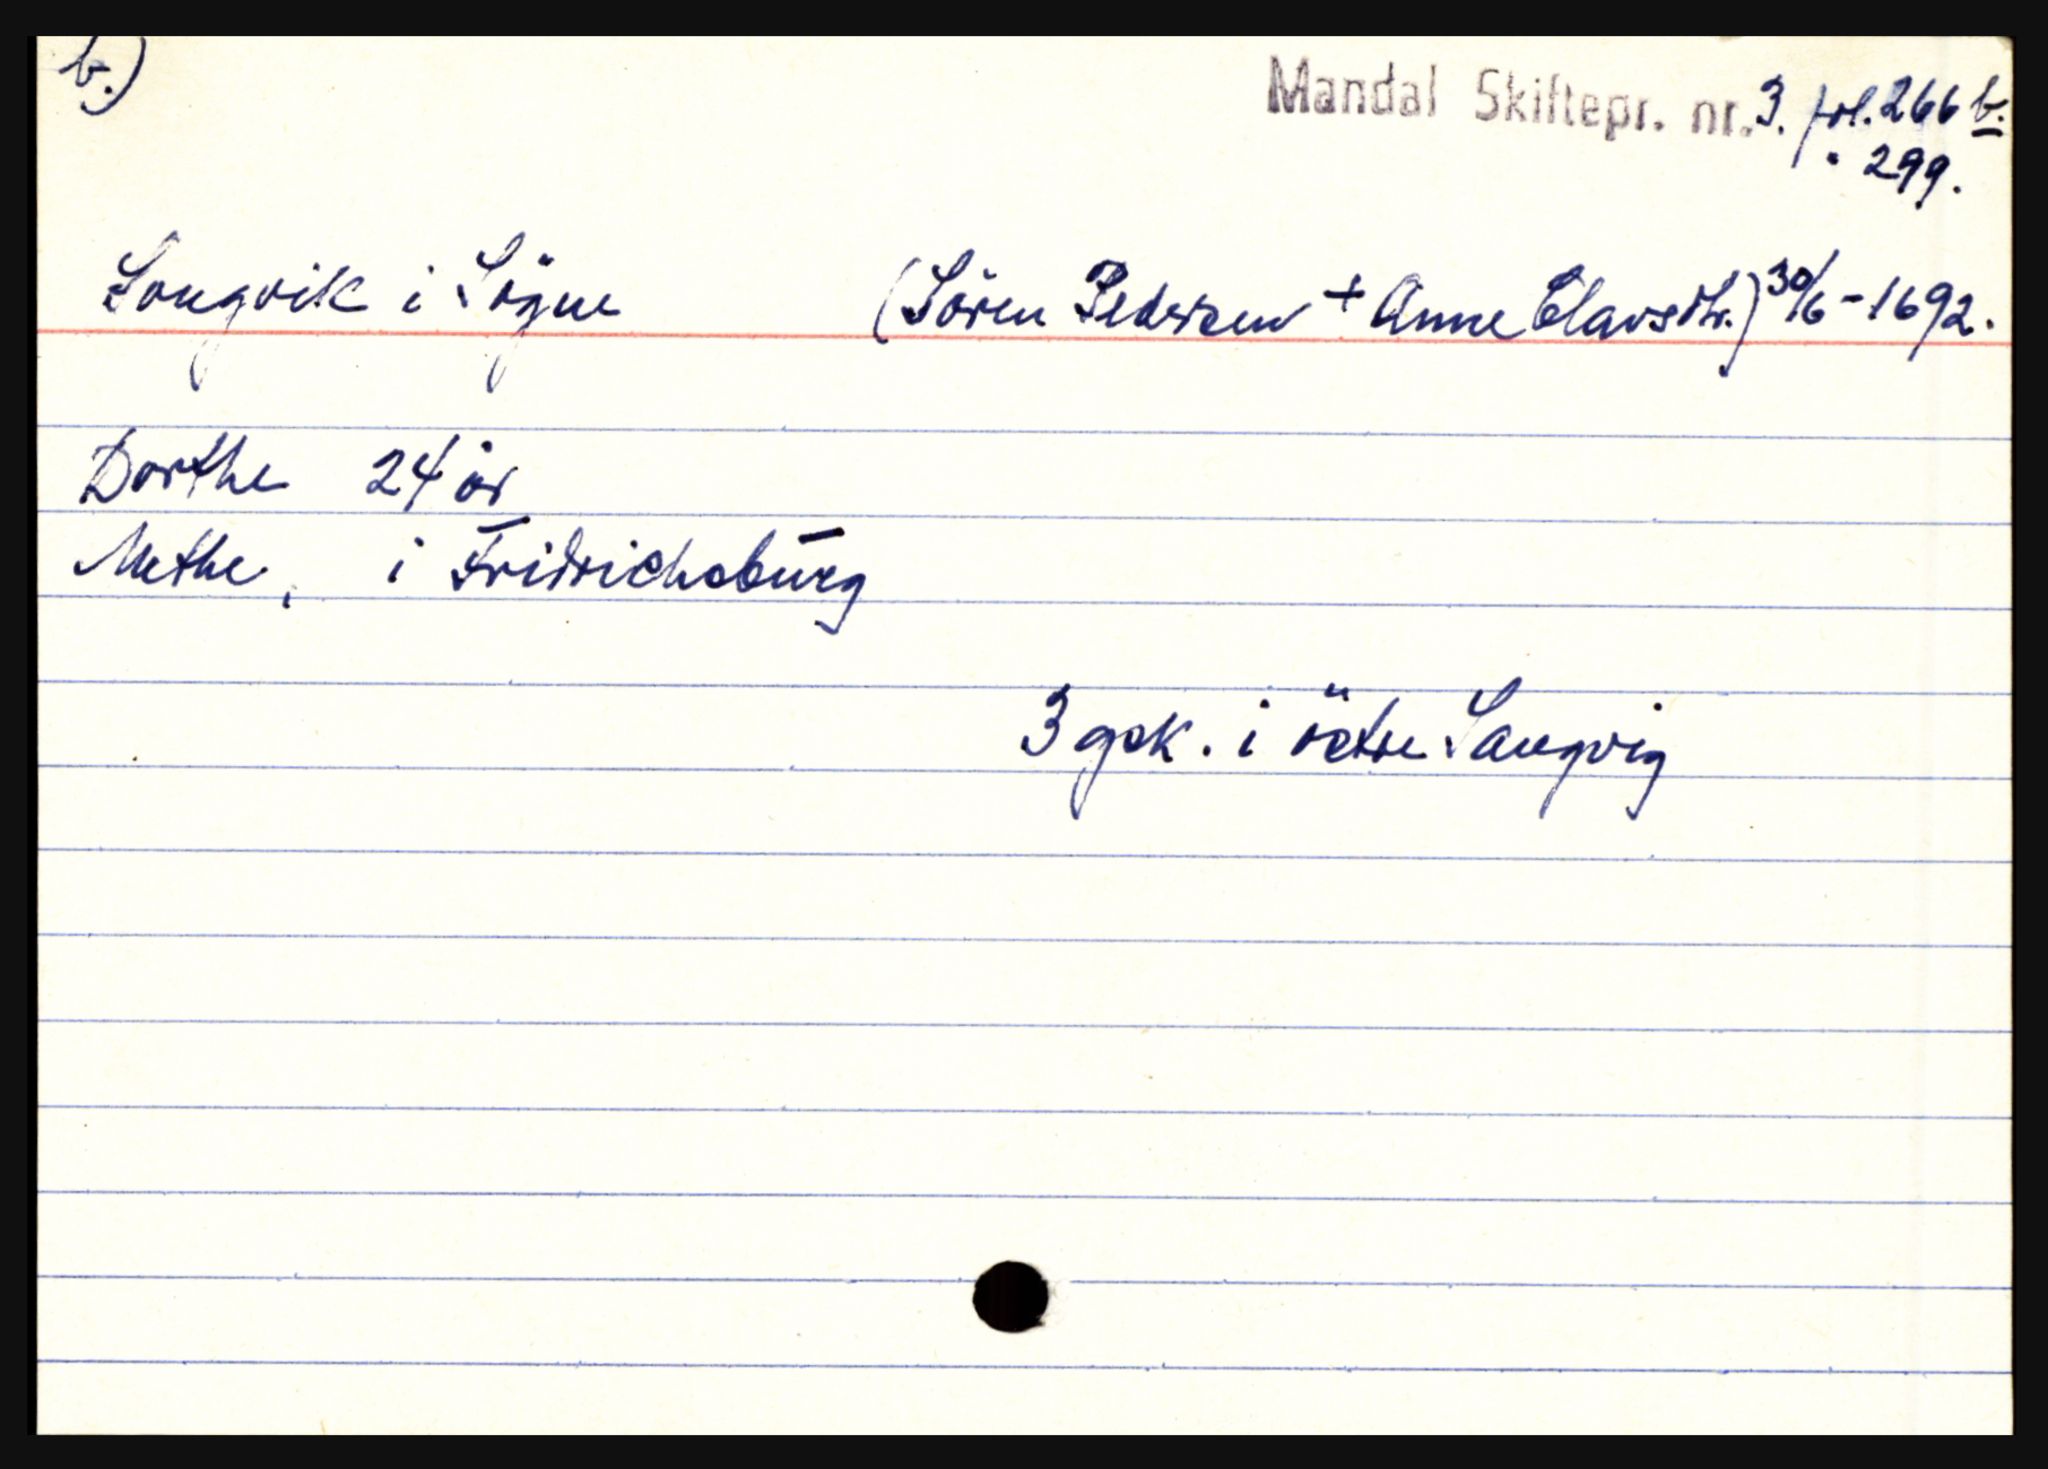 b.)
Mandal Skiftepr. nr. 3. fol. 266 b.
" 299.
Songvik i Sögne (Sören Pedersen + Anne Clavsdtr.) 30/6-1692.
Dorthe 24 år
Methe, i Fridrichsburg
3 gsk. i östre Sangvig